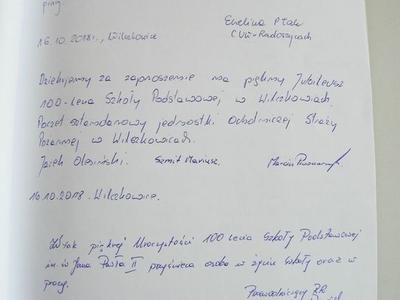 16.10.2018r., Wilczkowice
Ewelina Ptak
Dziękujemy za zaproszenie na piękny Jubileusz
100-lecia Szkoły Podstawowej w Wilczkowicach.
Poczet sztandarowy jednostki Ochotniczej Straży
Pożarnej w Wilczkowicach.
Jacek Olesiński. Szmit Mariusz. Marcin
16.10.2018. Wilczkowice.
W tak pięknej Uroczystości 100 lecia Szkoły Podstawowej
im. św Jana Pawła II przyświeca osoba w życiu szkoły oraz w
pracy.
Przewodniczący RR